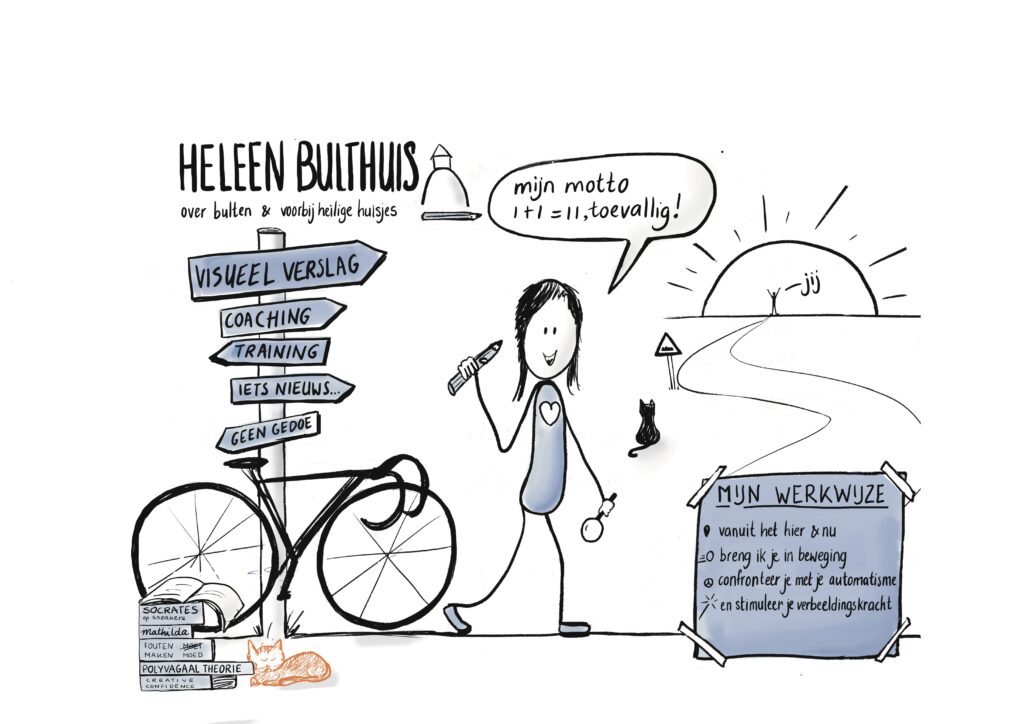 HELEEN BULTHUIS
over bulten & voorbij heilige huisjes
mijn motto
1+1=11, toevallig!
jij
VISUEEL VERSLAG
COACHING
TRAINING
IETS NIEUWS...
GEEN GEDOE
MIJN WERKWIJZE
vanuit het hier & nu
breng ik je in beweging
confronteer je met je automatisme
en stimuleer je verbeeldingskracht
SOCRATES
op sneakers
mathilda
FOUTEN MOET
MAKEN MOED
POLYVAGAAL THEORIE
CREATIVE
CONFIDENCE